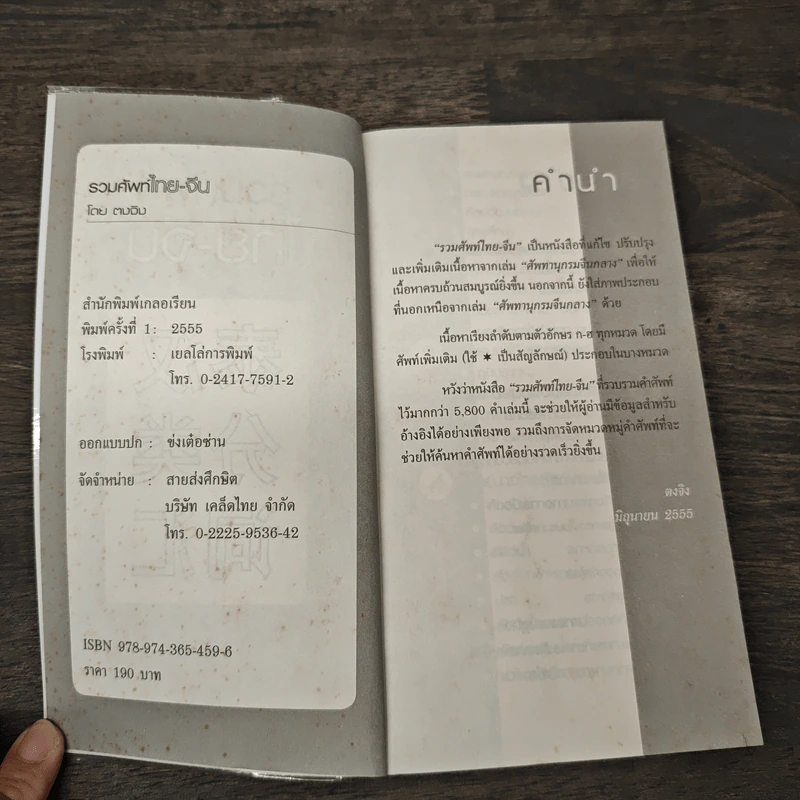 รวมศัพท์ไทย-จีน
โดย ตงฉิง
สำนักพิมพ์เกลอเรียน
พิมพ์ครั้งที่ 1 : 2555
โรงพิมพ์ : เยลโล่การพิมพ์
โทร. 0-2417-7591-2
ออกแบบปก : ช่งเต๋อซ่าน
จัดจำหน่าย : สายส่งศึกษิต
บริษัท เคล็ดไทย จำกัด
โทร. 0-2225-9536-42
ISBN 978-974-365-459-6
ราคา 190 บาท
คำนำ
“รวมศัพท์ไทย-จีน” เป็นหนังสือที่แก้ไข ปรับปรุง
และเพิ่มเติมเนื้อหาจากเล่ม “ศัพทานุกรมจีนกลาง” เพื่อให้
เนื้อหาครบถ้วนสมบูรณ์ยิ่งขึ้น นอกจากนี้ ยังใส่ภาพประกอบ
ที่นอกเหนือจากเล่ม “ศัพทานุกรมจีนกลาง” ด้วย
เนื้อหาเรียงลำดับตามตัวอักษร ก-ฮ ทุกหมวด โดยมี
ศัพท์เพิ่มเติม (ใช้ ✶ เป็นสัญลักษณ์) ประกอบในบางหมวด
หวังว่าหนังสือ “รวมศัพท์ไทย-จีน” ที่รวบรวมคำศัพท์
ไว้มากกว่า 5,800 คำเล่มนี้ จะช่วยให้ผู้อ่านมีข้อมูลสำหรับ
อ้างอิงได้อย่างเพียงพอ รวมถึงการจัดหมวดหมู่คำศัพท์ที่จะ
ช่วยให้ค้นหาคำศัพท์ได้อย่างรวดเร็วยิ่งขึ้น
ตงฉิง
มิถุนายน 2555